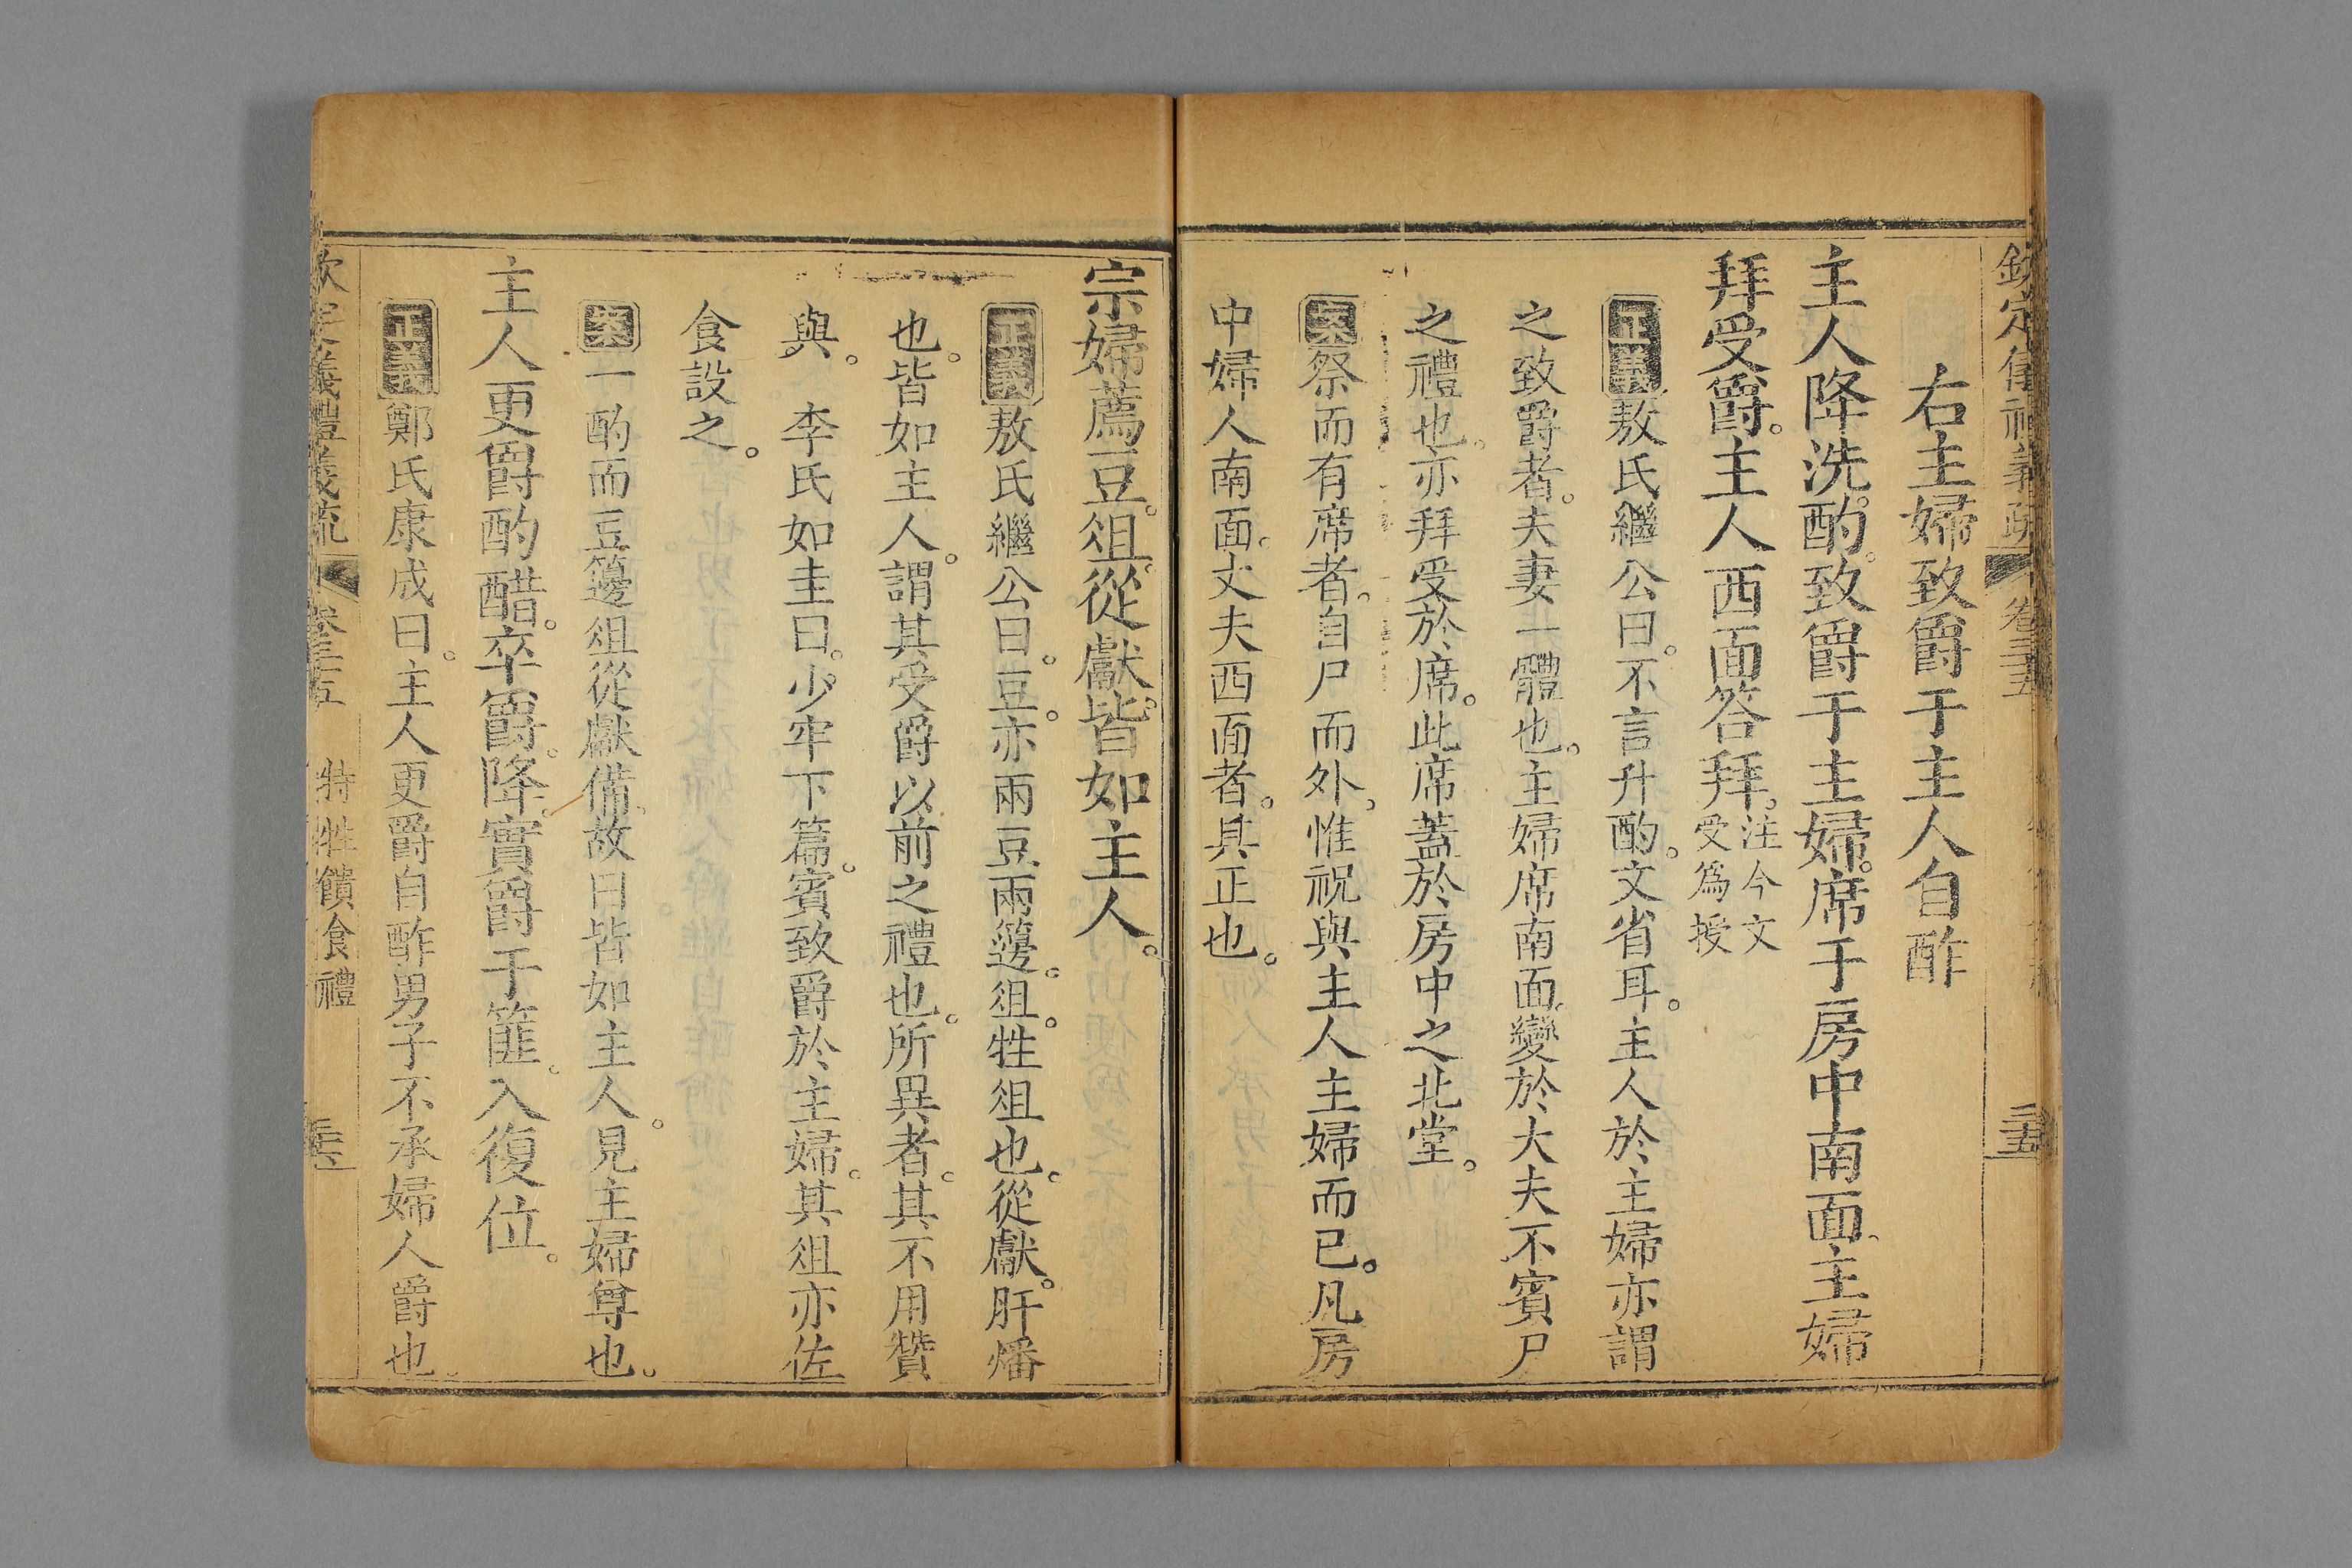 欽定儀禮義疏 卷三十五 三五
右主婦致爵于主人自酢
主人降洗酌。致爵于主婦。席于房中南面。主婦
拜受爵。主人西面答拜。注今文受爲授
正義敖氏繼公曰。不言升酌。文省耳。主人於主婦亦謂
之致爵者。夫妻一體也。主婦席南面。變於大夫不賓尸
之禮也。亦拜受於席。此席蓋於房中之北堂。
案祭而有席者。自尸而外。惟祝與主人主婦而已。凡房
中婦人南面。丈夫西面者。其正也。
宗婦薦豆。俎。從獻。皆如主人。
正義敖氏繼公曰。豆。亦兩豆兩籩。俎。牲俎也。從獻。肝燔
也。皆如主人。謂其受爵以前之禮也。所異者。其不用贊
與。 李氏如圭曰。少牢下篇。賓致爵於主婦。其俎亦佐
食設之。
案一酌而豆籩俎從獻備。故曰皆如主人。見主婦尊也。
主人更爵酌醋。卒爵。降。實爵于篚。入復位。
正義鄭氏康成曰。主人更爵自酢。男子不承婦人爵也。
欽定儀禮義疏 卷三十五 特牲饋食禮